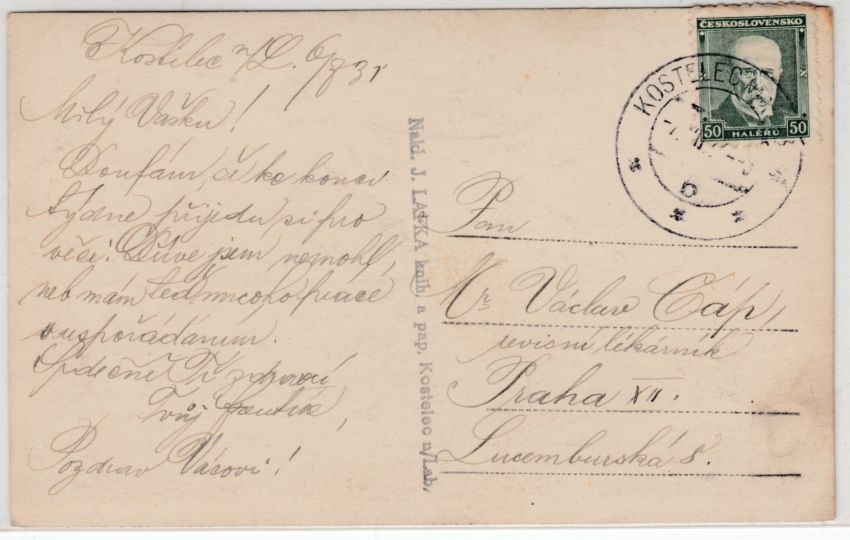 Kostelec n/L. 6/8 31
Milý Vašku!
Doufám, že ke konci
týdne přijedu si pro
věci. Dříve jsem nemohl,
neb mám teď mnoho práce
s uspořádáním.
Srdečně Tě zdraví
Tvůj
Pozdrav Vásovi!
Nakl. J. LASKA knih. a pap. Kostelec n/Lab.
ČESKOSLOVENSKO
50 HALÉŘŮ 50
KOSTELEC N.
Pan
Mr Václav Čáp,
revisní lékárník
Praha XII.
Lucemburská 8.